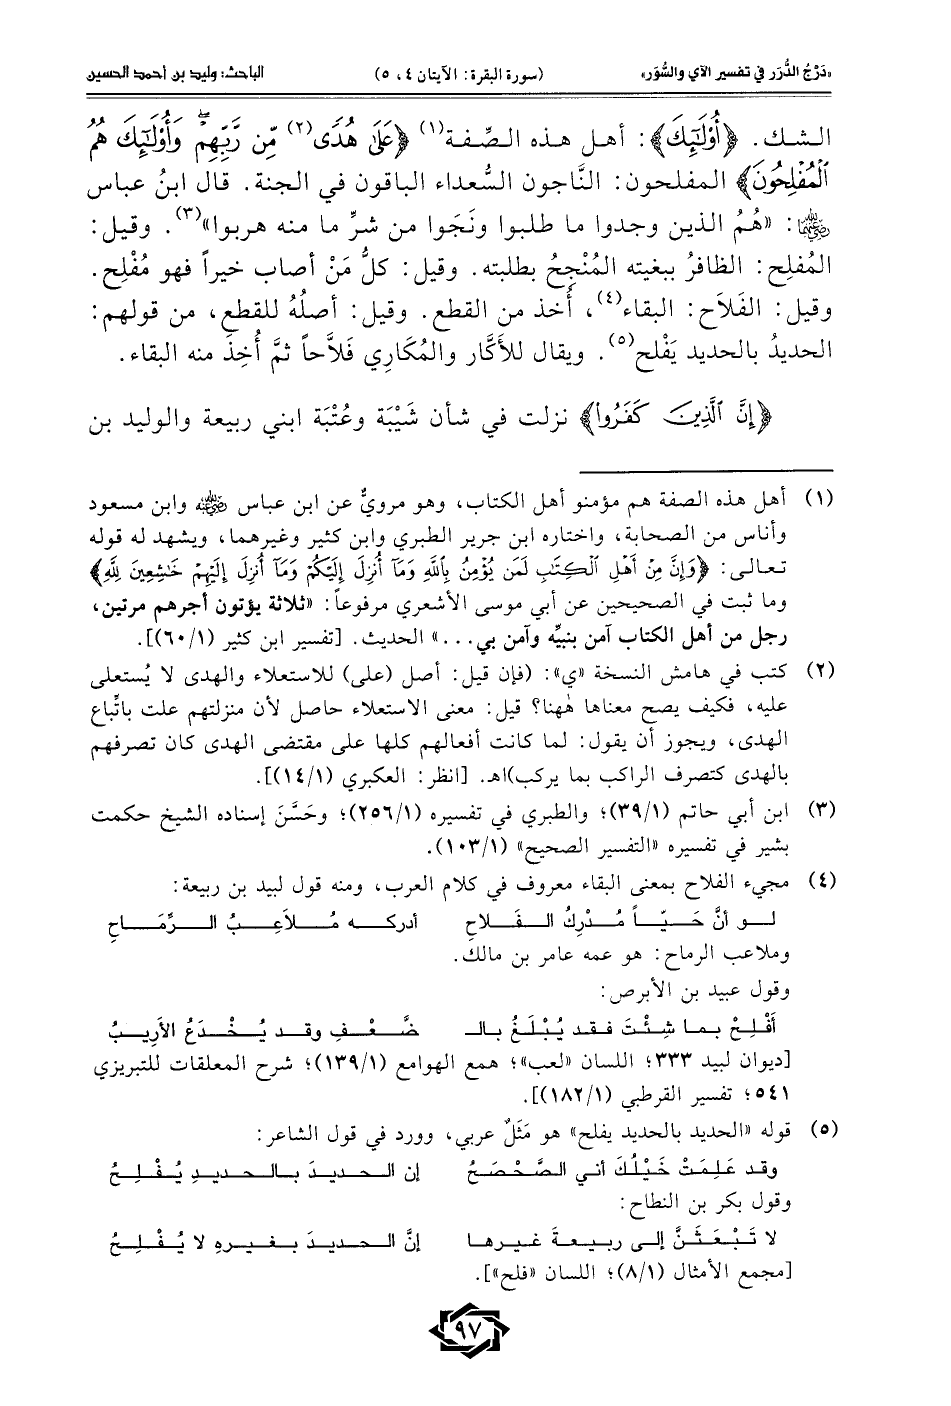 «دَرْجُ الدُّرَر في تفسير الآي والسُّوَر» (سورة البقرة: الآيتان ٤، ٥) الباحث: وليد بن أحمد الحسين
الشك. ﴿أُوْلَٰٓئِكَ﴾: أهل هذه الصِّفة(١) ﴿عَلَىٰ هُدٗى(٢) مِّن رَّبِّهِمۡۖ وَأُوْلَٰٓئِكَ هُمُ
ٱلۡمُفۡلِحُونَ﴾ المفلحون: النَّاجون السُّعداء الباقون في الجنة. قال ابنُ عباس
رضي الله عنهما: «هُمُ الذين وجدوا ما طلبوا ونَجَوا من شرِّ ما منه هربوا»(٣). وقيل:
المُفلِح: الظافرُ ببغيته المُنْجِحُ بطلبته. وقيل: كلُّ مَنْ أصاب خيراً فهو مُفْلِح.
وقيل: الفَلاَح: البقاء(٤)، أُخذ من القطع. وقيل: أصلُهُ للقطع، من قولهم:
الحديدُ بالحديد يَفْلح(٥). ويقال للأَكَّار والمُكَاري فَلاَّحاً ثمَّ أُخِذَ منه البقاء.
﴿إِنَّ ٱلَّذِينَ كَفَرُواْ﴾ نزلت في شأن شَيْبَة وعُتْبَة ابني ربيعة والوليد بن
(١) أهل هذه الصفة هم مؤمنو أهل الكتاب، وهو مرويٌّ عن ابن عباس رضي الله عنهما وابن مسعود
وأناس من الصحابة، واختاره ابن جرير الطبري وابن كثير وغيرهما، ويشهد له قوله
تعالى: ﴿وَإِنَّ مِنۡ أَهۡلِ ٱلۡكِتَٰبِ لَمَن يُؤۡمِنُ بِٱللَّهِ وَمَآ أُنزِلَ إِلَيۡكُمۡ وَمَآ أُنزِلَ إِلَيۡهِمۡ خَٰشِعِينَ لِلَّهِ﴾
وما ثبت في الصحيحين عن أبي موسى الأشعري مرفوعاً: «ثلاثة يؤتون أجرهم مرتين،
رجل من أهل الكتاب آمن بنبيِّه وآمن بي...» الحديث. [تفسير ابن كثير (٦٠/١)].
(٢) كتب في هامش النسخة «ي»: (فإن قيل: أصل (على) للاستعلاء والهدى لا يُستعلى
عليه، فكيف يصح معناها هٰهنا؟ قيل: معنى الاستعلاء حاصل لأن منزلتهم علت باتِّباع
الهدى، ويجوز أن يقول: لما كانت أفعالهم كلها على مقتضى الهدى كان تصرفهم
بالهدى كتصرف الراكب بما يركب)اهـ. [انظر: العكبري (١٤/١)].
(٣) ابن أبي حاتم (٣٩/١)؛ والطبري في تفسيره (٢٥٦/١)؛ وحَسَّنَ إسناده الشيخ حكمت
بشير في تفسيره «التفسير الصحيح» (١٠٣/١).
(٤) مجيء الفلاح بمعنى البقاء معروف في كلام العرب، ومنه قول لبيد بن ربيعة:
لو أنَّ حَيّاً مُدْرِكُ الفَلاحِ أدركه مُلاَعِبُ الرِّمَاحِ
وملاعب الرماح: هو عمه عامر بن مالك.
وقول عبيد بن الأبرص:
أَفْلِحْ بما شِئْتَ فقد يُبْلَغُ بالـ ضَّعْفِ وقد يُخْدَعُ الأَرِيبُ
[ديوان لبيد ٣٣٣؛ اللسان «لعب»؛ همع الهوامع (١٣٩/١)؛ شرح المعلقات للتبريزي
٥٤١؛ تفسير القرطبي (١٨٢/١)].
(٥) قوله «الحديد بالحديد يفلح» هو مَثَلٌ عربي، وورد في قول الشاعر:
وقد عَلِمَتْ خَيْلُكَ أني الصَّحْصَحُ إن الحديدَ بالحديدِ يُفْلِحُ
وقول بكر بن النطاح:
لا تَبْعَثَنَّ إلى ربيعةَ غيرها إنَّ الحديدَ بغيرِهِ لا يُفْلِحُ
[مجمع الأمثال (٨/١)؛ اللسان «فلح»].
٩٧